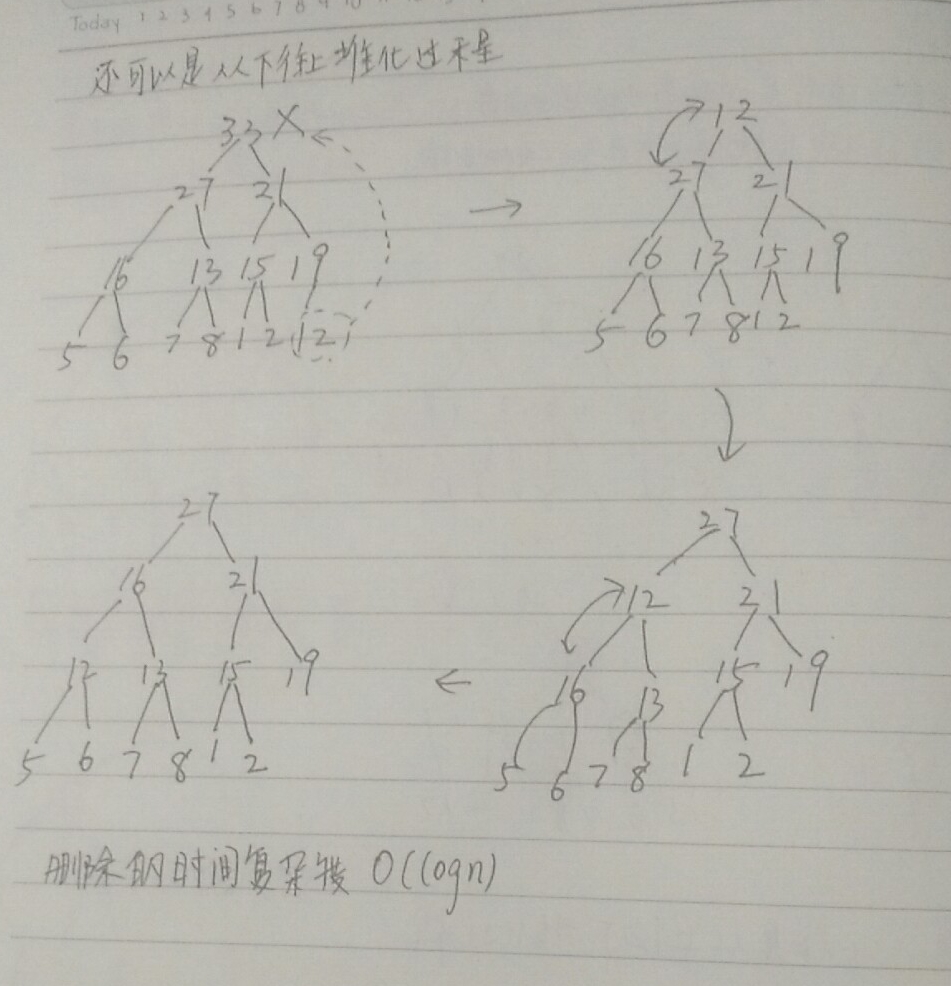 Today 1 2 3 4 5 6 7 8 9 10
还可以是从下往上堆化过程
33 X
27 21
16 13 15 19
5 6 7 8 1 2 12
→
12
27 21
16 13 15 19
5 6 7 8 1 2
27
12 21
16 13 15 19
5 6 7 8 1 2
←
27
16 21
12 13 15 19
5 6 7 8 1 2
删除的时间复杂度 O(logn)